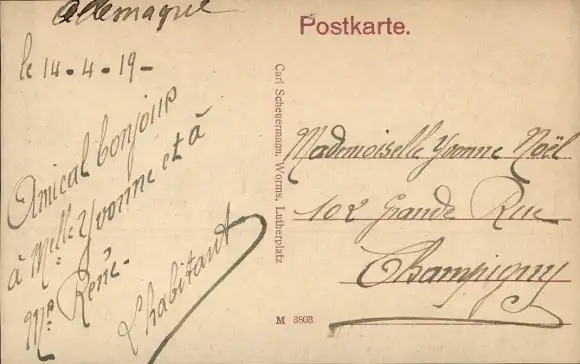 Allemagne
le 14-4-19-
Amical bonjour
à Melle Yvonne et à
Mr René-
L'habitant
Postkarte.
Carl Scheuermann, Worms, Lutherplatz
Mademoiselle Yvonne Noël
102 Grande Rue
Champigny
M 3803